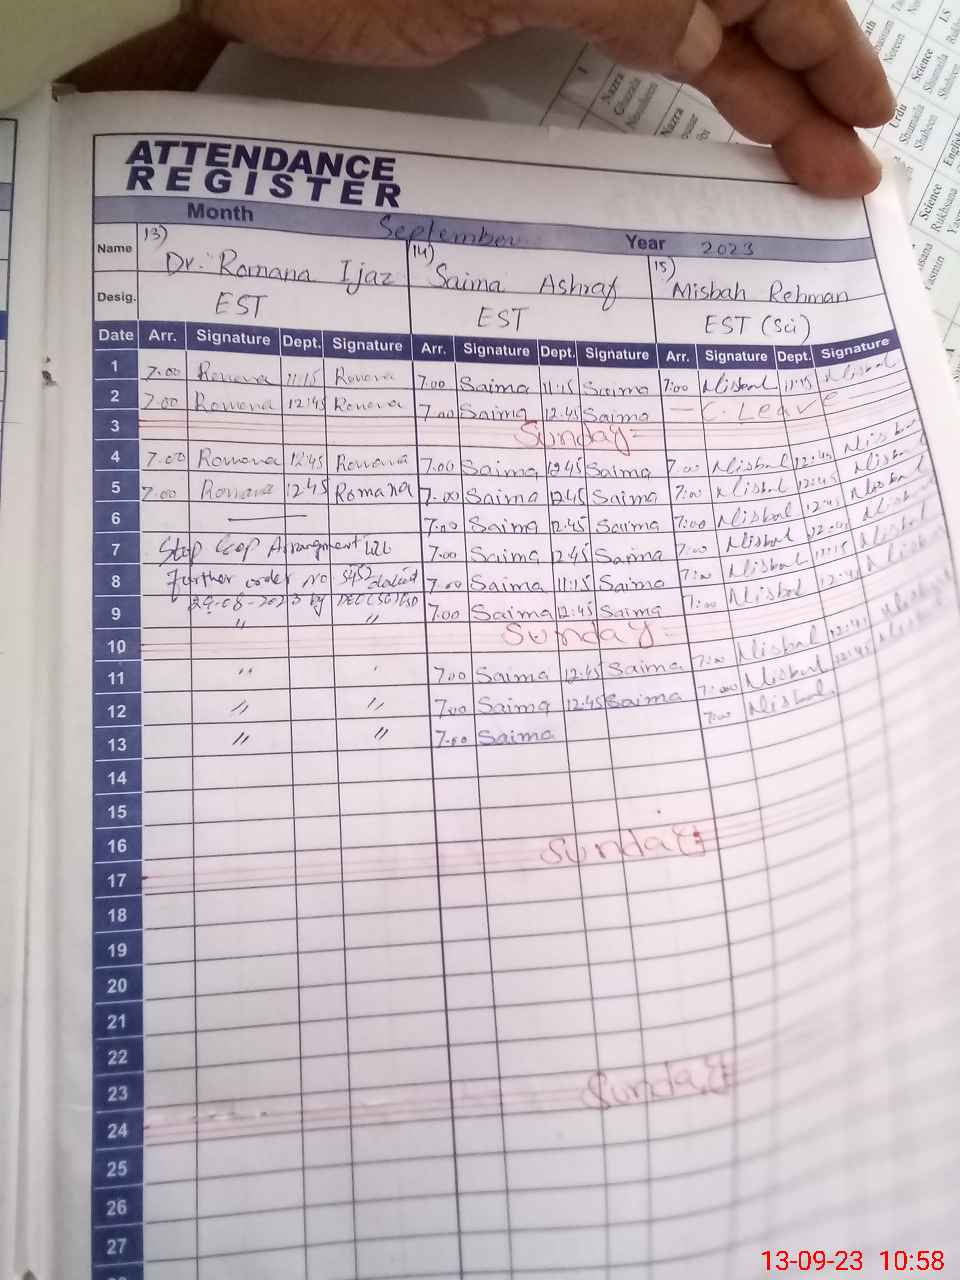 ATTENDANCE
REGISTER
Month September Year 2023
Name 13) Dr. Romana Ijaz 14) Saima Ashraf 15) Misbah Rehman
Desig. EST EST EST (Sci)
Date Arr. Signature Dept. Signature Arr. Signature Dept. Signature Arr. Signature Dept. Signature
1 7.00 Romana 11:15 Romana 7.00 Saima 11:15 Saima 7:00 Misbah 11:15 Misbah
2 7.00 Romana 12:45 Romana 7.00 Saima 12:45 Saima — C. Leave —
3 Sunday
4 7.00 Romana 12:45 Romana 7.00 Saima 12:45 Saima 7:00 Misbah 12:45 Misbah
5 7:00 Romana 12:45 Romana 7.00 Saima 12:45 Saima 7:00 Misbah 12:45 Misbah
6 — 7.00 Saima 12:45 Saima 7:00 Misbah 12:45 Misbah
7 Stop Arrangment 7.00 Saima 12:45 Saima 7:00 Misbah 12:45 Misbah
8 further order no dated 7.00 Saima 11:15 Saima 7:00 Misbah 11:15 Misbah
9 29-08-2023 by 7.00 Saima 12:45 Saima 7:00 Misbah 12:45 Misbah
10 " " Sunday
11 " 7.00 Saima 12:45 Saima 7:00 Misbah 12:45 Misbah
12 " " 7.00 Saima 12:45 Saima 7:00 Misbah 12:45 Misbah
13 " " 7.00 Saima 7:00 Misbah
14
15
16 Sunday
17
18
19
20
21
22
23 Sunday
24
25
26
27
13-09-23 10:58